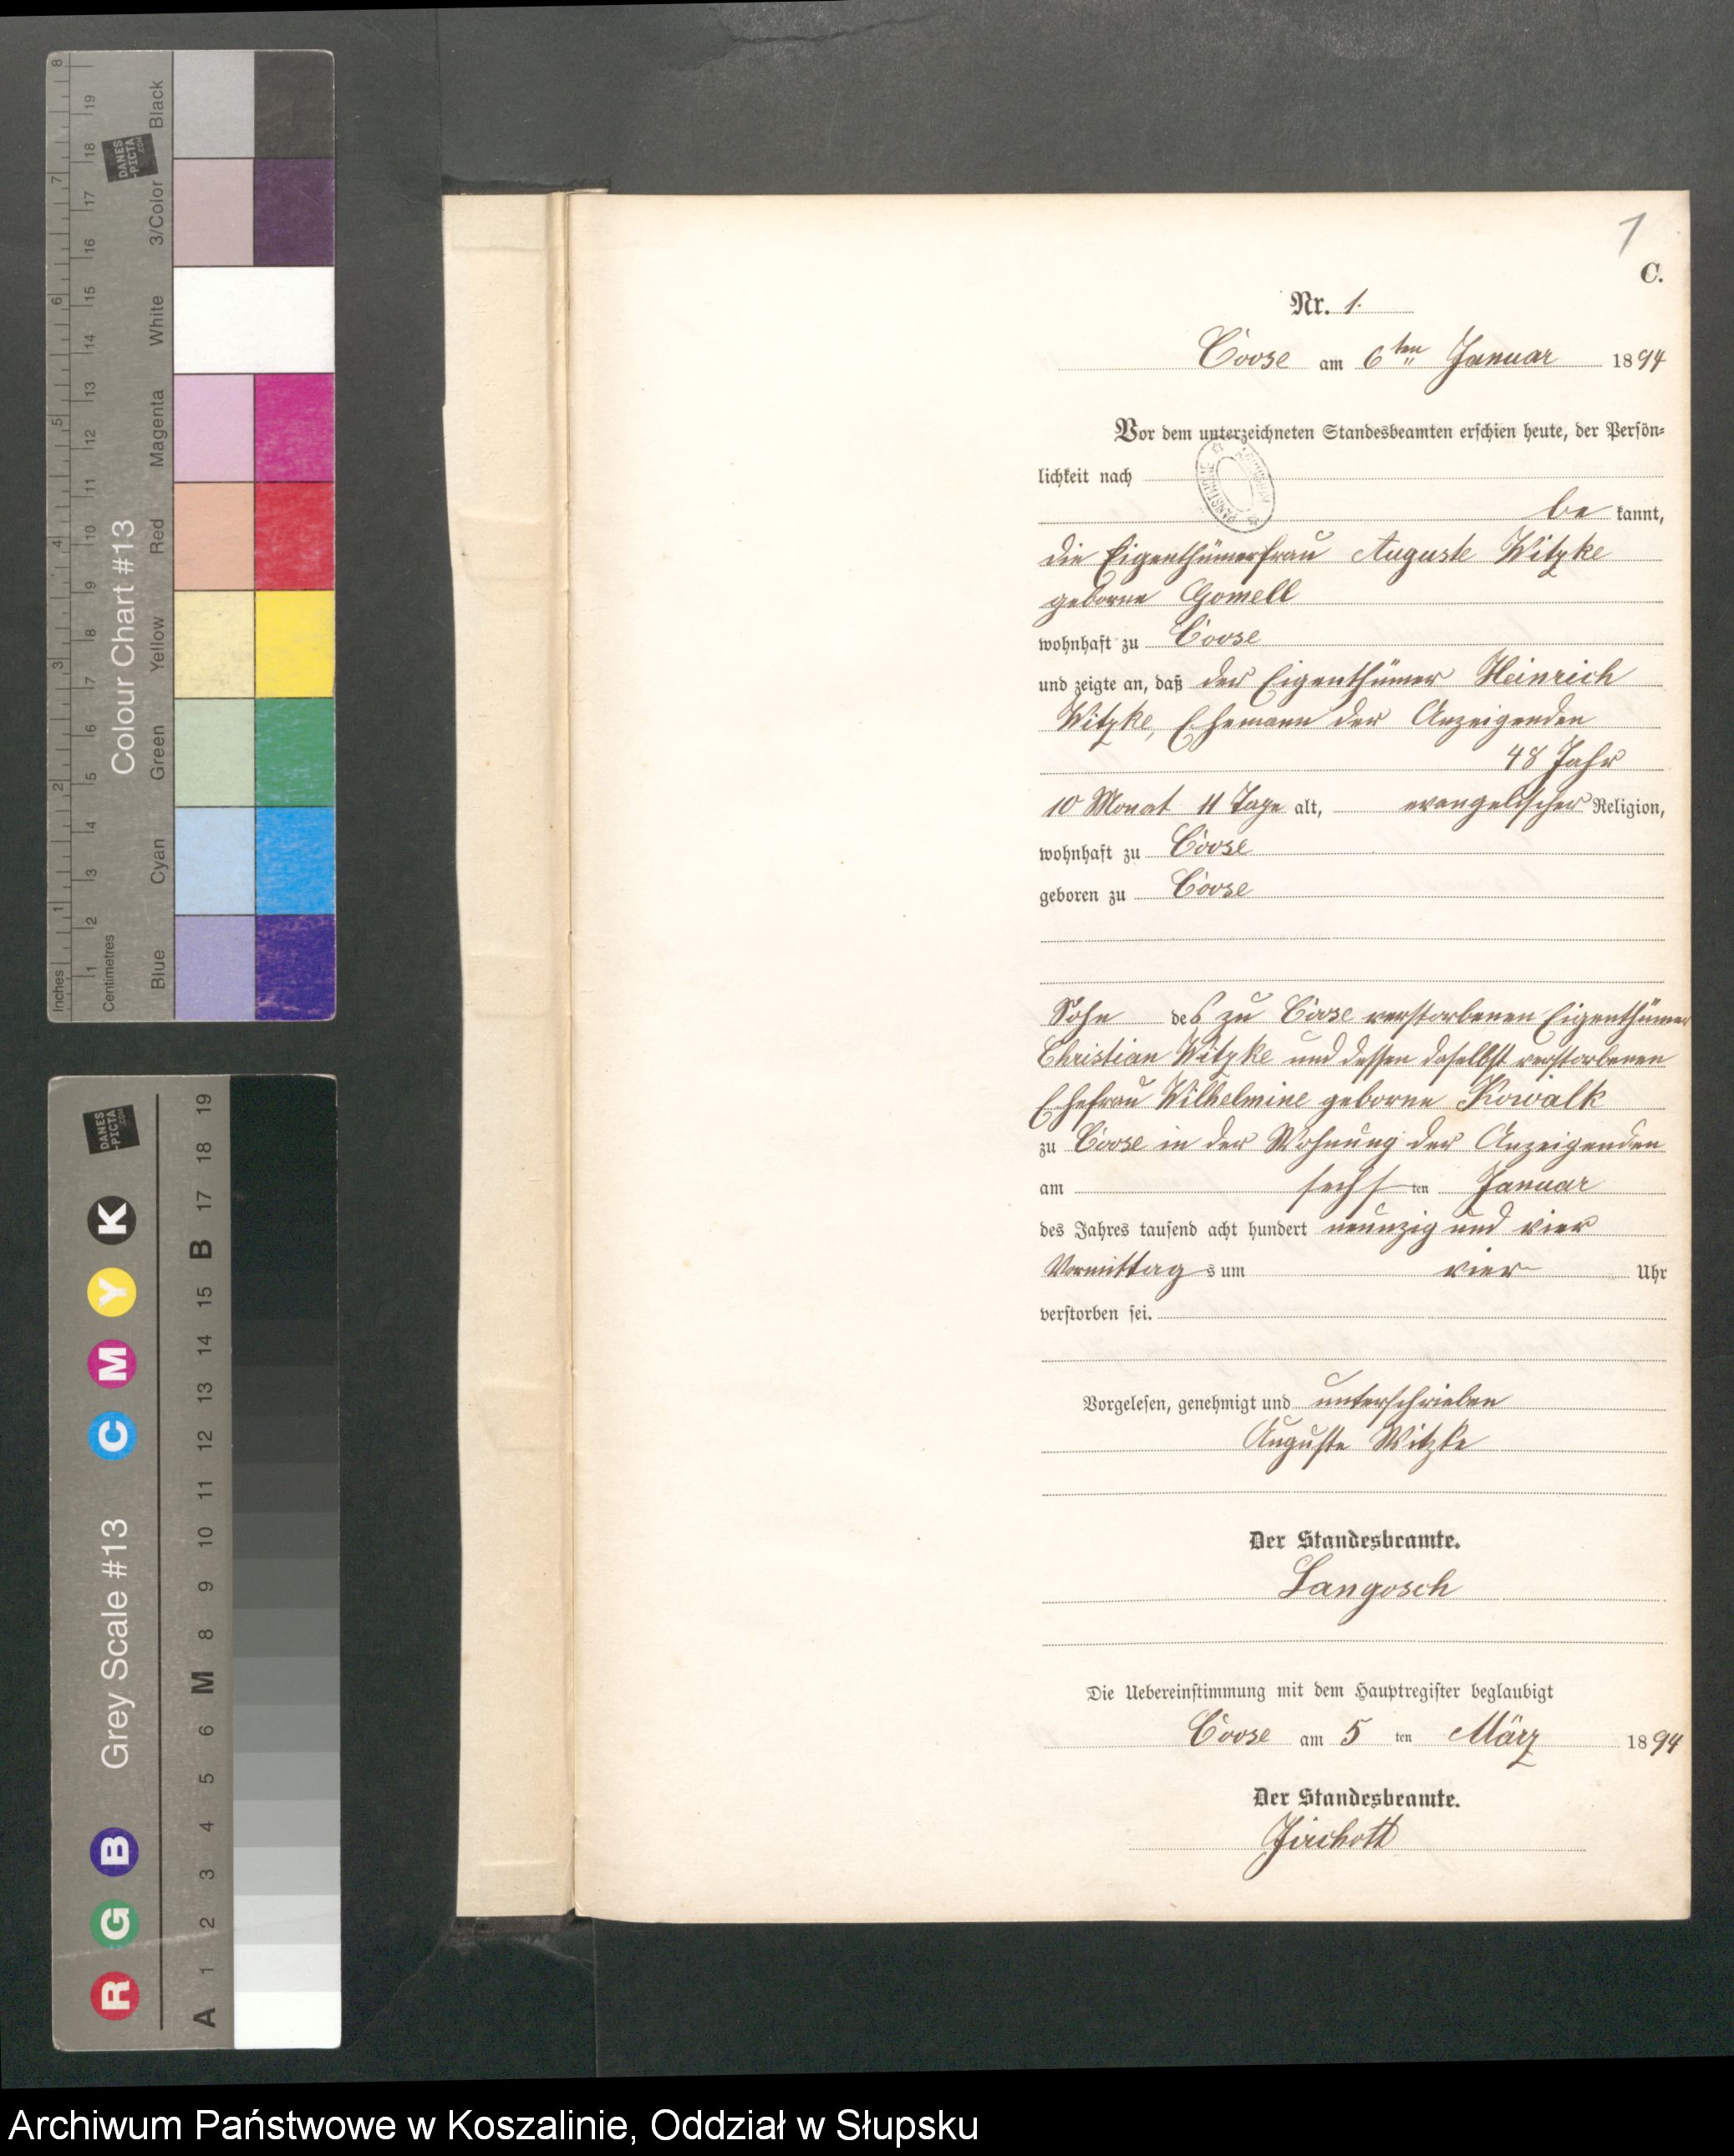 1
C.
Nr. 1.
Coose am 6ten Januar 1894
Vor dem unterzeichneten Standesbeamten erschien heute, der Persön-
lichkeit nach
be kannt,
die Eigenthümerfrau Auguste Witzke
geborne Gomell
wohnhaft zu Coose
und zeigte an, daß der Eigenthümer Heinrich
Witzke, Ehemann der Anzeigenden
48 Jahr
10 Monat 11 Tage alt, evangelischer Religion,
wohnhaft zu Coose
geboren zu Coose
Sohn des zu Coose verstorbenen Eigenthümer
Christian Witzke und dessen daselbst verstorbenen
Ehefrau Wilhelmine geborne Kowalk
zu Coose in der Wohnung der Anzeigenden
am sechsten Januar
des Jahres tausend acht hundert neunzig und vier
Vormittags um vier Uhr
verstorben sei.
Vorgelesen, genehmigt und unterschrieben
Auguste Witzke
Der Standesbeamte.
Langosch
Die Uebereinstimmung mit dem Hauptregister beglaubigt
Coose am 5ten März 1894
Der Standesbeamte.
Jirchott
Colour Chart #13
Inches 1 2 3 4 5 6 7 8
Centimetres 1 2 3 4 5 6 7 8 9 10 11 12 13 14 15 16 17 18 19
Blue Cyan Green Yellow Red Magenta White 3/Color Black
DANES
-PICTA
.COM
Grey Scale #13
R G B C M Y K
A 1 2 3 4 5 6 M 8 9 10 11 12 13 14 15 B 17 18 19
DANES
-PICTA
.COM
Archiwum Państwowe w Koszalinie, Oddział w Słupsku